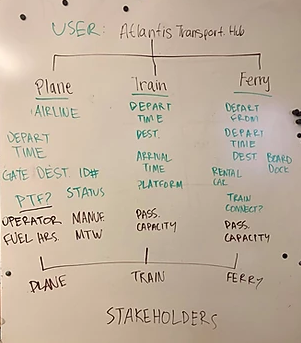 USER: Atlantis Transport. Hub
Plane
AIRLINE
DEPART
TIME
GATE DEST. ID#
PTF? STATUS
OPERATOR MANUF
FUEL HRS. MTW
Train
DEPART
TIME
DEST.
ARRIVAL
TIME
PLATFORM
PASS.
CAPACITY
Ferry
DEPART
FROM
DEPART
TIME
DEST BOARD
DOCK
RENTAL
CAL
TRAIN
CONNECT?
PASS.
CAPACITY
PLANE TRAIN FERRY
STAKEHOLDERS